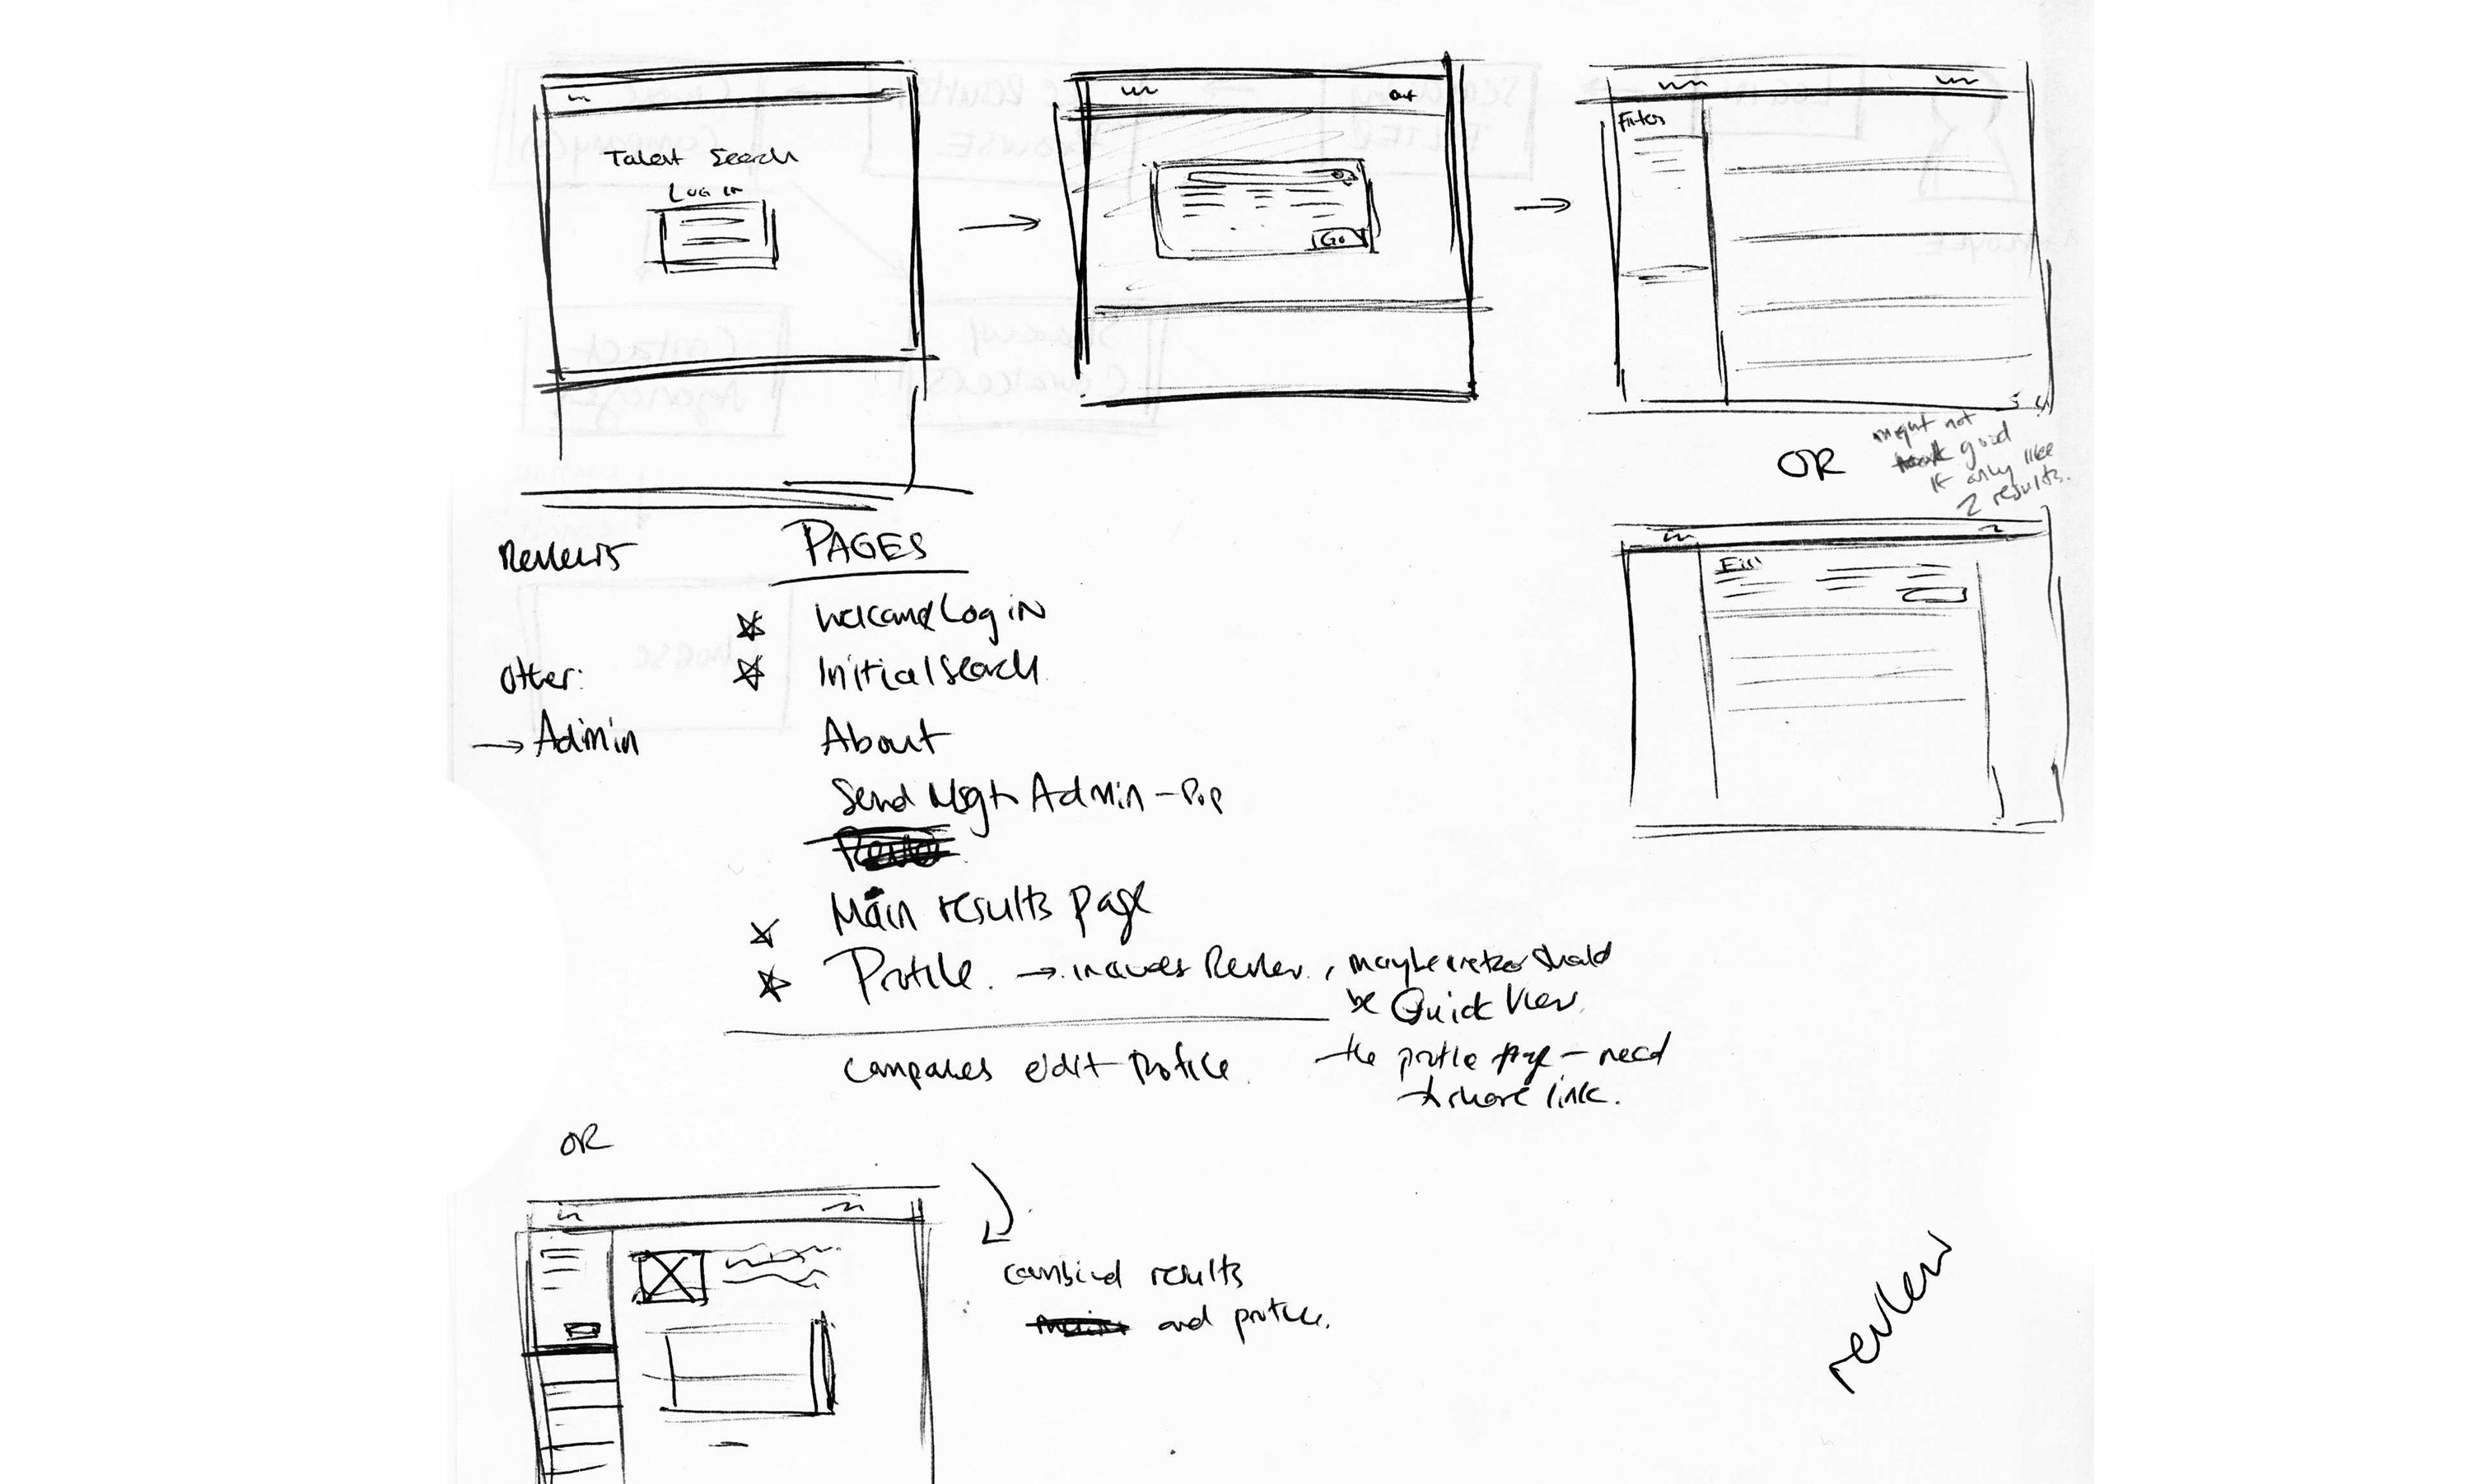 Talent Search
Log in
out
Go
Filter
OR
might not
good
if only like
2 results.
Reviews
PAGES
Welcome/Log iN
Initial Search
Other:
→ Admin
About
Send Msg t Admin - Pop
Main results page
Profile. → includes Review.,
maybe instead should
be Quick View.
the profile page - need
to share link.
Companies edit Profile
OR
combined results
and profile.
review